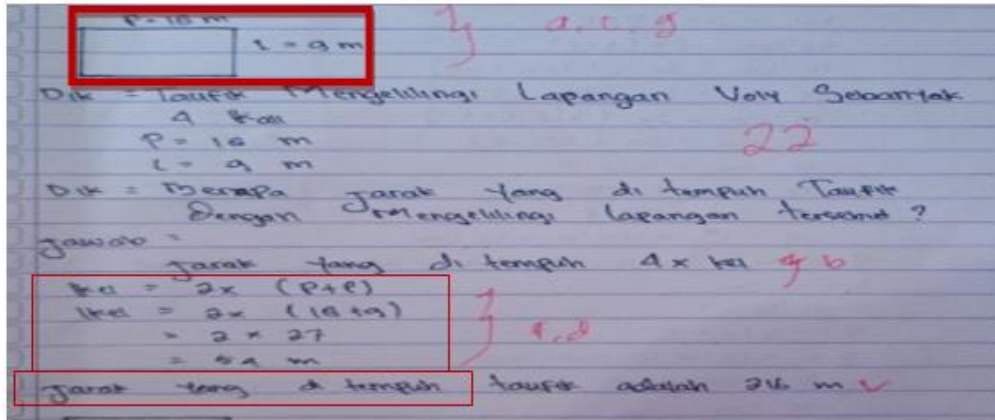 P = 18 m
l = 9 m
a, c, g
Dik = Taufik Mengelilingi Lapangan Voly Sebanyak
4 Kali
P = 18 m
22
l = 9 m
Dik = Berapa Jarak Yang di tempuh Taufik
Dengan Mengelilingi lapangan tersebut ?
Jawab =
Jarak Yang di tempuh 4 x kel b
kel = 2x (P+l)
kel = 2x (18+9)
= 2 x 27
= 54 m
Jarak Yang di tempuh taufik adalah 216 m